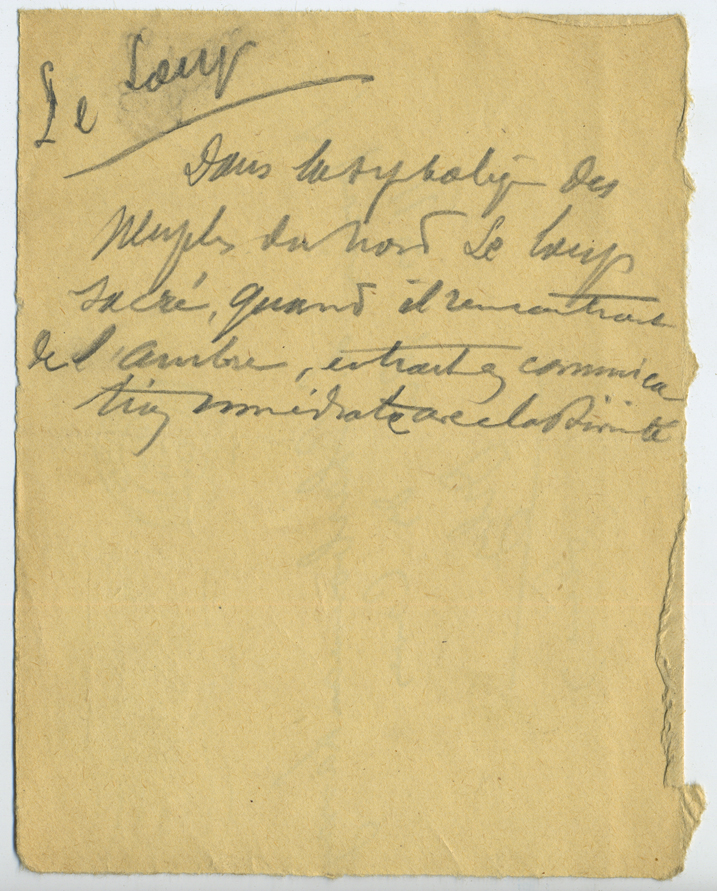 Le Loup
Dans la symbolique des
peuples du Nord Le loup
sacré, quand il rencontrait
de l'ambre, entrait en communica
tion immédiate avec la Divinité